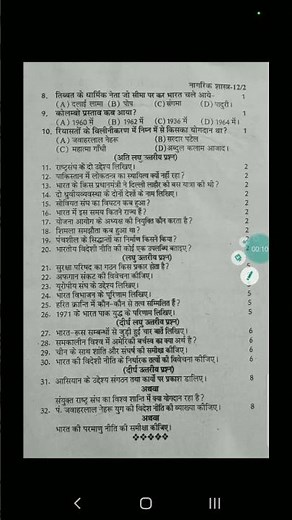 नागरिक शास्त्र-12/2
8. तिब्बत के धार्मिक नेता जो सीमा पार कर भारत चले आये- 1
(A) दलाई लामा (B) पोप (C) खंगामा (D) पादुरी।
9. कोलम्बो प्रस्ताव कब आया? 1
(A) 1960 में (B) 1962 में (C) 1936 में (D) 1964 में।
10. रियासतों के विलीनीकरण में निम्न में से किसका योगदान था? 1
(A) जवाहरलाल नेहरू (B) सरदार पटेल
(C) महात्मा गाँधी (D) अब्दुल कलाम आजाद।
(अति लघु उत्तरीय प्रश्न)
11. राष्ट्रसंघ के दो उद्देश्य लिखिए। 2
12. पाकिस्तान में लोकतन्त्र का स्थायित्व क्यों नहीं रहा? 2
13. भारत के किस प्रधानमंत्री ने दिल्ली लाहौर की बस यात्रा की थी? 2
14. दो ध्रुवीयव्यवस्था के दोनों देशों के नाम लिखिए। 2
15. सोवियत संघ का विघटन कब हुआ? 2
16. भारत में इस समय कितने राज्य हैं? 2
17. योजना आयोग के अध्यक्ष की नियुक्ति कौन करता है? 2
18. शिमला समझौता कब हुआ था? 2
19. पंचशील के सिद्धान्तों का निर्माण किसने किया?
20. भारतीय विदेशी नीति की कोई एक उपलब्धि बताइए? 2
(लघु उत्तरीय प्रश्न)
00:10
21. सुरक्षा परिषद का गठन किस प्रकार होता है?
22. अफगान संकट की विवेचना कीजिए।
23. यूरोपीय संघ के उद्देश्य लिखिए।
24. भारत विभाजन के परिणाम लिखिए। 5
25. हरित क्रान्ति में कौन-कौन से तत्व सम्मिलित हैं? 5
26. 1971 के भारत पाक युद्ध के परिणाम लिखिए। 5
(दीर्घ लघु उत्तरीय प्रश्न)
27. भारत-रूस सम्बन्धों से जुड़ी हुई चार बातें लिखिए। 6
28. समकालीन विश्व में अमेरिकी वर्चस्व का क्या अर्थ है? 6
29. चीन के साथ शांति और संघर्ष की समीक्षा कीजिए। 6
30. भारत की विदेशी नीति के निर्धारक तत्वों की विवेचना कीजिए। 6
(दीर्घ उत्तरीय प्रश्न)
31. आसियान के उद्देश्य संगठन तथा कार्यों पर प्रकाश डालिए। 8
अथवा
संयुक्त राष्ट्र संघ का विश्व शान्ति में क्या योगदान रहा है?
32. पं. जवाहरलाल नेहरू युग की विदेश नीति की व्याख्या कीजिए। 8
अथवा
भारत की परमाणु नीति की समीक्षा कीजिए।